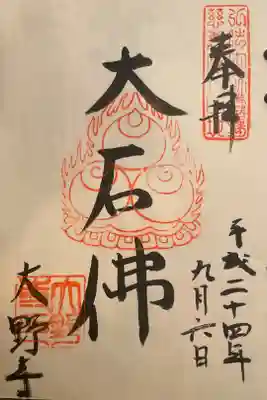 奉拝
平成二十四年
九月六日
大石佛
大野寺